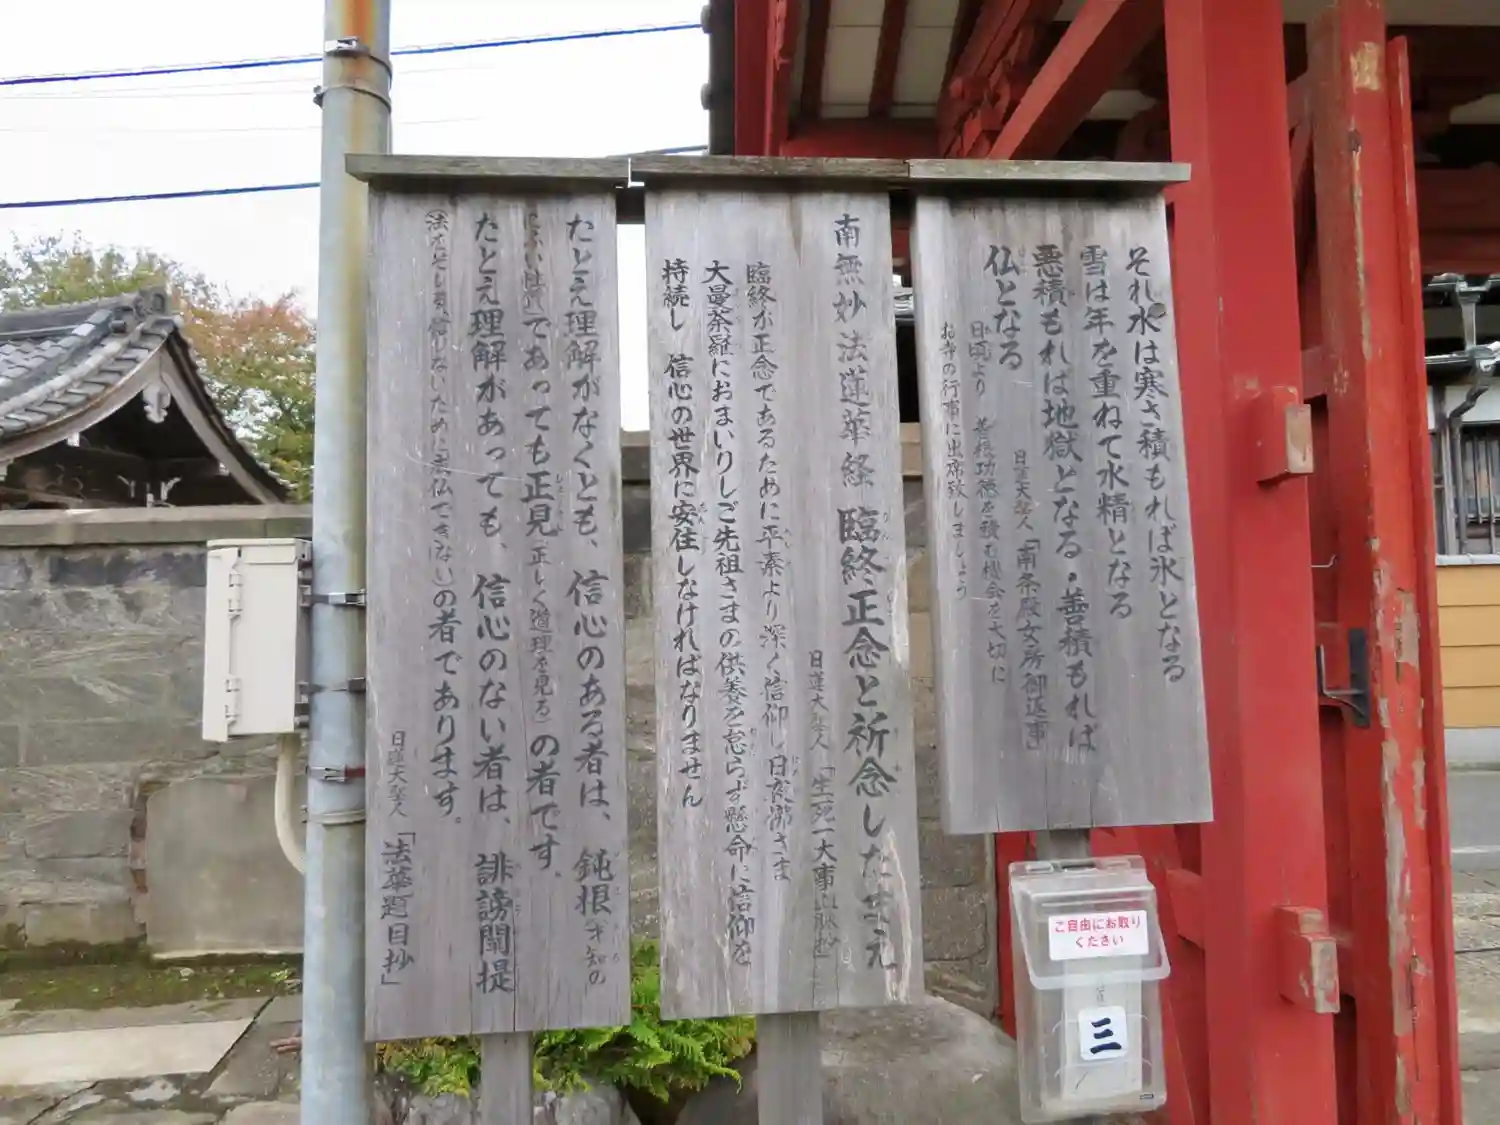 それ水は寒さ積もれば氷となる
雪は年を重ねて水精となる
悪積もれば地獄となる・善積もれば
仏となる
日蓮大聖人「南条殿女房御返事」
日頃より 善根功徳を積む機会を大切に
お寺の行事に出席致しましょう
南無妙法蓮華経 臨終正念と祈念したまえ
日蓮大聖人「生死一大事血脈抄」
臨終が正念であるために平素より深く信仰し日夜御さま
大曼荼羅におまいりしご先祖さまの供養を怠らず懸命に信仰を
持続し 信心の世界に安住しなければなりません
たとえ理解がなくとも、信心のある者は、鈍根
であっても正見(正しく道理を見る)の者です。
たとえ理解があっても、信心のない者は、誹謗闡提
の者であります。
日蓮大聖人「法華題目抄」
ご自由にお取り
ください
三